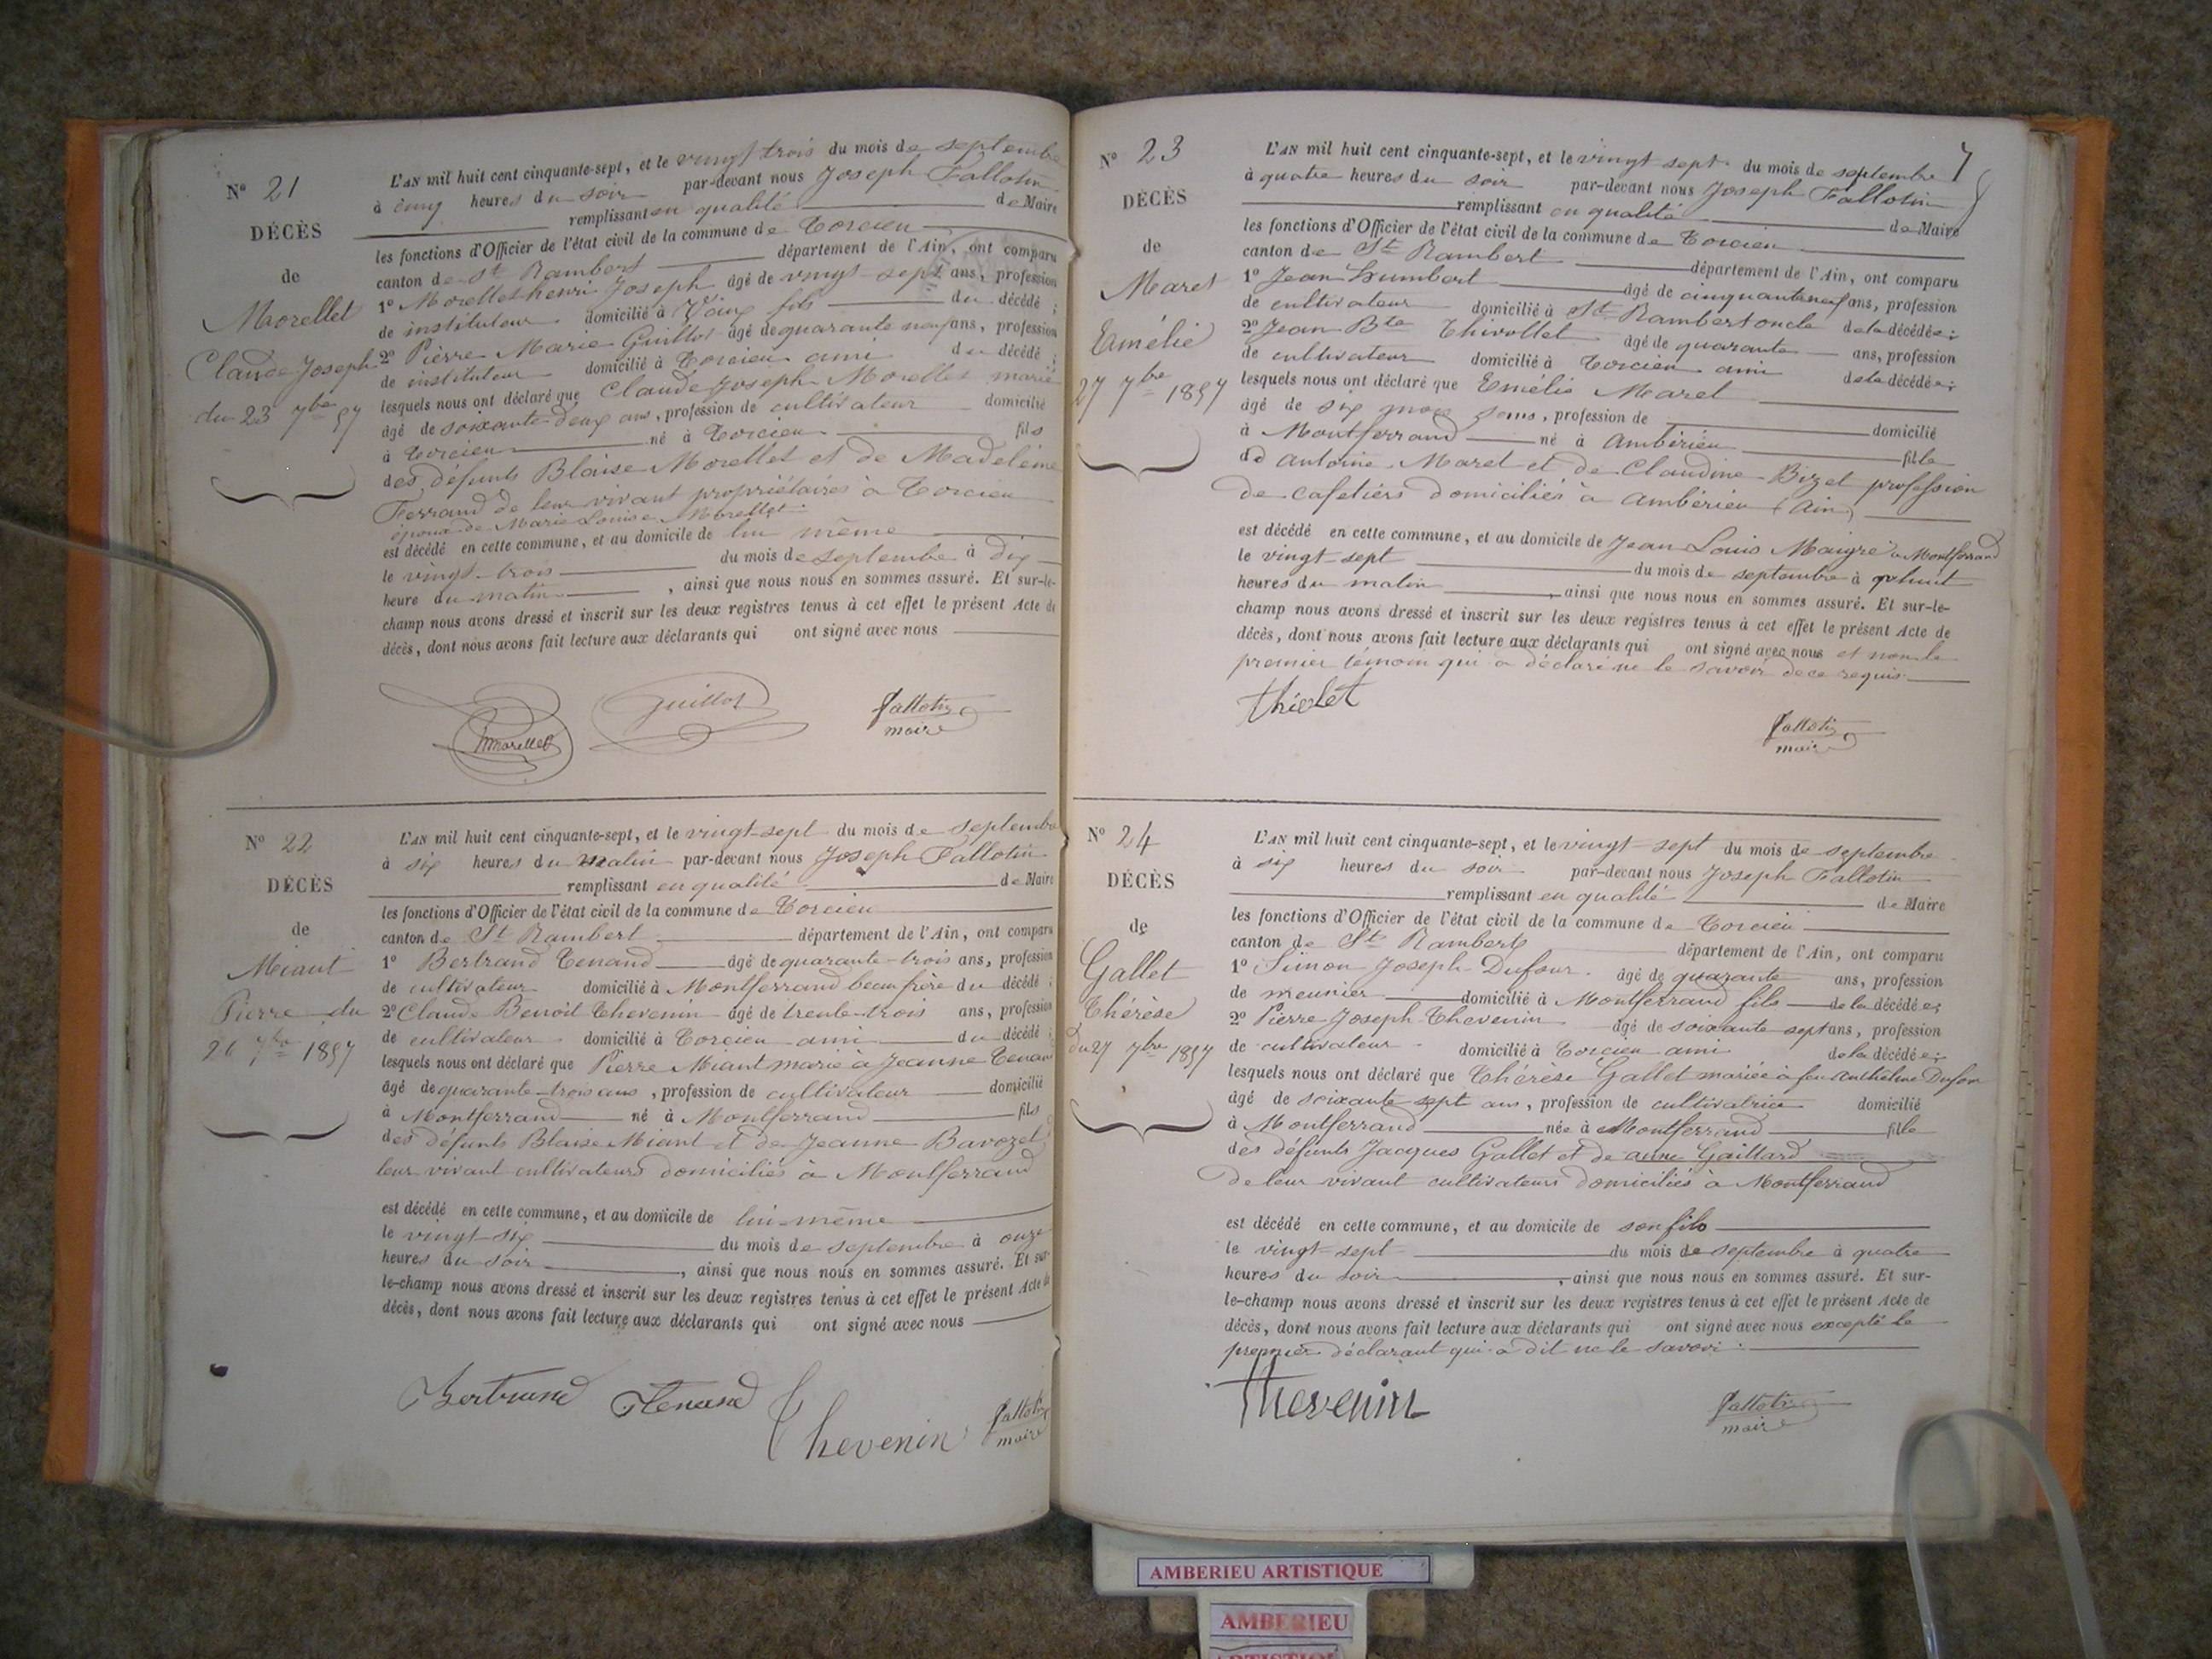 N° 21
DÉCÈS
de
Morellet
Claude Joseph
du 23 7bre 57
L'AN mil huit cent cinquante-sept, et le vingt trois du mois de septembre
à cinq heures du soir par-devant nous Joseph Fallotin
remplissant en qualité de Maire
les fonctions d'Officier de l'état civil de la commune de Torcieu
canton de St Rambert département de l'Ain, ont comparu
1° Morellet henri Joseph âgé de vingt-sept ans, profession
de instituteur domicilié à Vaux fils du décédé ;
2° Pierre Marie Guillot âgé de quarante neuf ans, profession
de instituteur domicilié à Torcieu ami du décédé ;
lesquels nous ont déclaré que Claude Joseph Morellet marié
âgé de soixante-deux ans, profession de cultivateur domicilié
à Torcieu né à Torcieu fils
des défunts Blaise Morellet et de Madeleine
Ferrand de leur vivant propriétaires à Torcieu
époux de Marie Louise Morellet
est décédé en cette commune, et au domicile de lui même
le vingt-trois du mois de septembre à dix
heure du matin, ainsi que nous nous en sommes assuré. Et sur-le-
champ nous avons dressé et inscrit sur les deux registres tenus à cet effet le présent Acte de
décès, dont nous avons fait lecture aux déclarants qui ont signé avec nous
Morellet Guillot Fallotin
maire
N° 22
DÉCÈS
de
Miant
Pierre du
26 7bre 1857
L'AN mil huit cent cinquante-sept, et le vingt-sept du mois de septembre
à six heures du matin par-devant nous Joseph Fallotin
remplissant en qualité de Maire
les fonctions d'Officier de l'état civil de la commune de Torcieu
canton de St Rambert département de l'Ain, ont comparu
1° Bertrand Tenand âgé de quarante-trois ans, profession
de cultivateur domicilié à Montferrand beau frère du décédé ;
2° Claude Benoit Thevenin âgé de trente-trois ans, profession
de cultivateur domicilié à Torcieu ami du décédé ;
lesquels nous ont déclaré que Pierre Miant marié à Jeanne Tenand
âgé de quarante-trois ans, profession de cultivateur domicilié
à Montferrand né à Montferrand fils
des défunts Blaise Miant et de Jeanne Bavozet
leur vivant cultivateurs domiciliés à Montferrand
est décédé en cette commune, et au domicile de lui-même
le vingt-six du mois de septembre à onze
heures du soir, ainsi que nous nous en sommes assuré. Et sur
le-champ nous avons dressé et inscrit sur les deux registres tenus à cet effet le présent Acte de
décès, dont nous avons fait lecture aux déclarants qui ont signé avec nous
Bertrand Tenand Thevenin Fallotin
maire
7
N° 23
DÉCÈS
de
Maret
Emélie
27 7bre 1857
L'AN mil huit cent cinquante-sept, et le vingt-sept du mois de septembre
à quatre heures du soir par-devant nous Joseph Fallotin
remplissant en qualité de Maire
les fonctions d'Officier de l'état civil de la commune de Torcieu
canton de St Rambert département de l'Ain, ont comparu
1° Jean Humbert âgé de cinquante neuf ans, profession
de cultivateur domicilié à St Rambert oncle de la décédée ;
2° Jean Bte Thivollet âgé de quarante ans, profession
de cultivateur domicilié à Torcieu ami de la décédée ;
lesquels nous ont déclaré que Emélie Maret
âgé de six mois, profession de domicilié
à Montferrand né à Ambérieu fille
de Antoine Maret et de Claudine Bizet profession
de cafetiers domiciliés à Ambérieu (Ain)
est décédé en cette commune, et au domicile de Jean Louis Maigre à Montferrand
le vingt-sept du mois de septembre à huit
heures du matin, ainsi que nous nous en sommes assuré. Et sur-le-
champ nous avons dressé et inscrit sur les deux registres tenus à cet effet le présent Acte de
décès, dont nous avons fait lecture aux déclarants qui ont signé avec nous et non le
premier témoin qui a déclaré ne le savoir de ce requis
Thivolet
Fallotin
maire
N° 24
DÉCÈS
de
Gallet
Thérèse
du 27 7bre 1857
L'AN mil huit cent cinquante-sept, et le vingt-sept du mois de septembre
à six heures du soir par-devant nous Joseph Fallotin
remplissant en qualité de Maire
les fonctions d'Officier de l'état civil de la commune de Torcieu
canton de St Rambert département de l'Ain, ont comparu
1° Simon Joseph Dufour âgé de quarante ans, profession
de meunier domicilié à Montferrand fils de la décédée ;
2° Pierre Joseph Thevenin âgé de soixante sept ans, profession
de cultivateur domicilié à Torcieu ami de la décédée ;
lesquels nous ont déclaré que Thérèse Gallet mariée à feu Anthelme Dufour
âgé de soixante sept ans, profession de cultivatrice domicilié
à Montferrand née à Montferrand fille
des défunts Jacques Gallet et de anne Gaillard
de leur vivant cultivateurs domiciliés à Montferrand
est décédé en cette commune, et au domicile de son fils
le vingt-sept du mois de septembre à quatre
heures du soir, ainsi que nous nous en sommes assuré. Et sur-
le-champ nous avons dressé et inscrit sur les deux registres tenus à cet effet le présent Acte de
décès, dont nous avons fait lecture aux déclarants qui ont signé avec nous excepté le
premier déclarant qui a dit ne le savoir
Thevenin
Fallotin
maire
AMBERIEU ARTISTIQUE
AMBERIEU
ARTISTIQUE